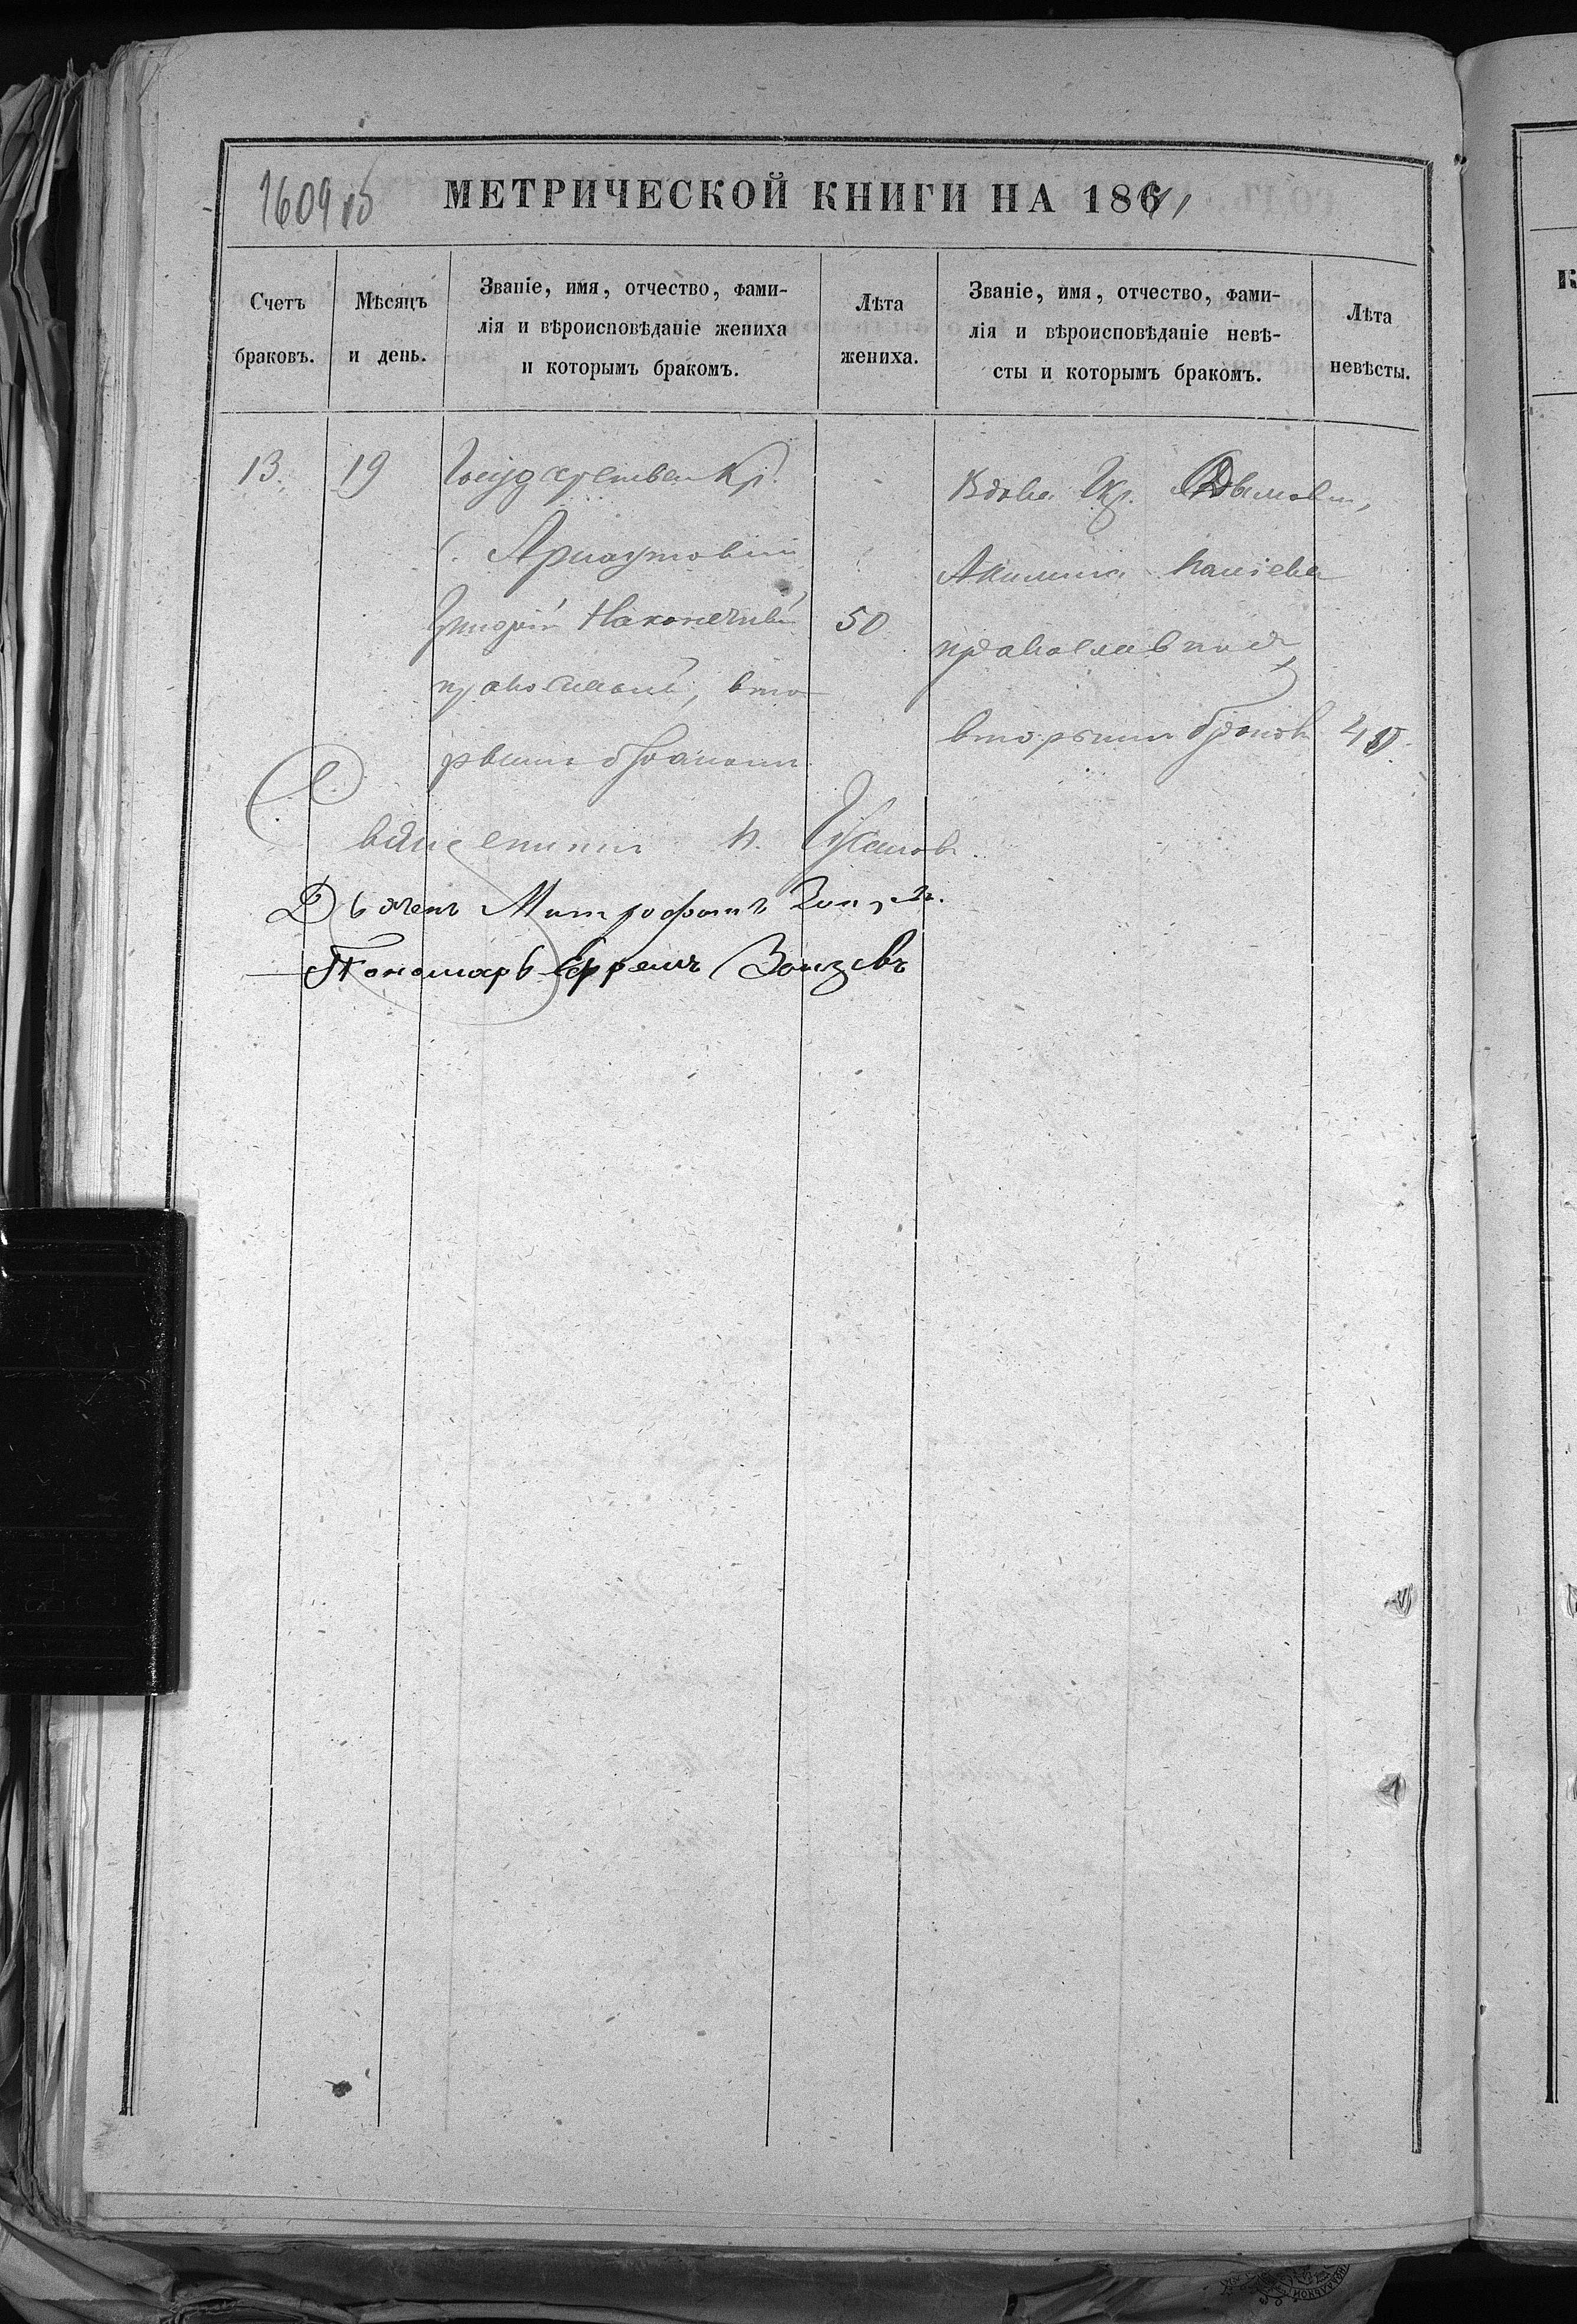 1609 об
МЕТРИЧЕСКОЙ КНИГИ НА 1861
Счетъ браковъ.
Мѣсяцъ и день.
Званіе, имя, отчество, фами-
лія и вѣроисповѣданіе жениха
и которымъ бракомъ.
Лѣта жениха.
Званіе, имя, отчество, фами-
лія и вѣроисповѣданіе невѣ-
сты и которымъ бракомъ.
Лѣта невѣсты.
13. 19
Государствен Кр.
с. Арнаутовки
Григорій Наконечный
православный, вто-
рымъ бракомъ.
50
Вдова
Акилина
православная
вторымъ бракомъ
40.
Священникъ Н. Гусаковъ.
Дьячекъ Митрофанъ
Пономарь Ефремъ